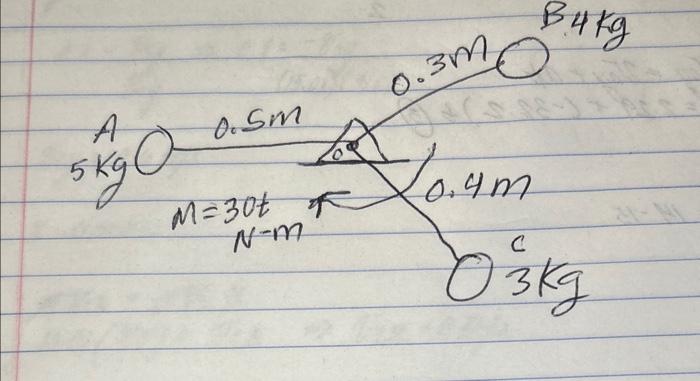 B 4kg
0.3m
A
0.5m
5kg
0
0.4m
M=30t
N-m
C
3kg